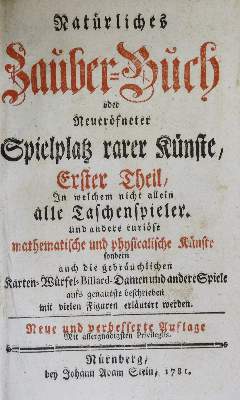 Natürliches
Zauber-Buch
oder
Neueröfneter
Spielplatz rarer Künste,
Erster Theil,
In welchem nicht allein
alle Taschenspieler-
und andere curiöse
mathematische und physicalische Künste
sondern
auch die gebräuchlichen
Karten-Würfel-Billard-Damen und andere Spiele
aufs genaueste beschrieben
mit vielen Figuren erläutert werden.
Neue und verbesserte Auflage
Mit allergnädigsten Privilegiis.
Nürnberg,
bey Johann Adam Stein, 1781.